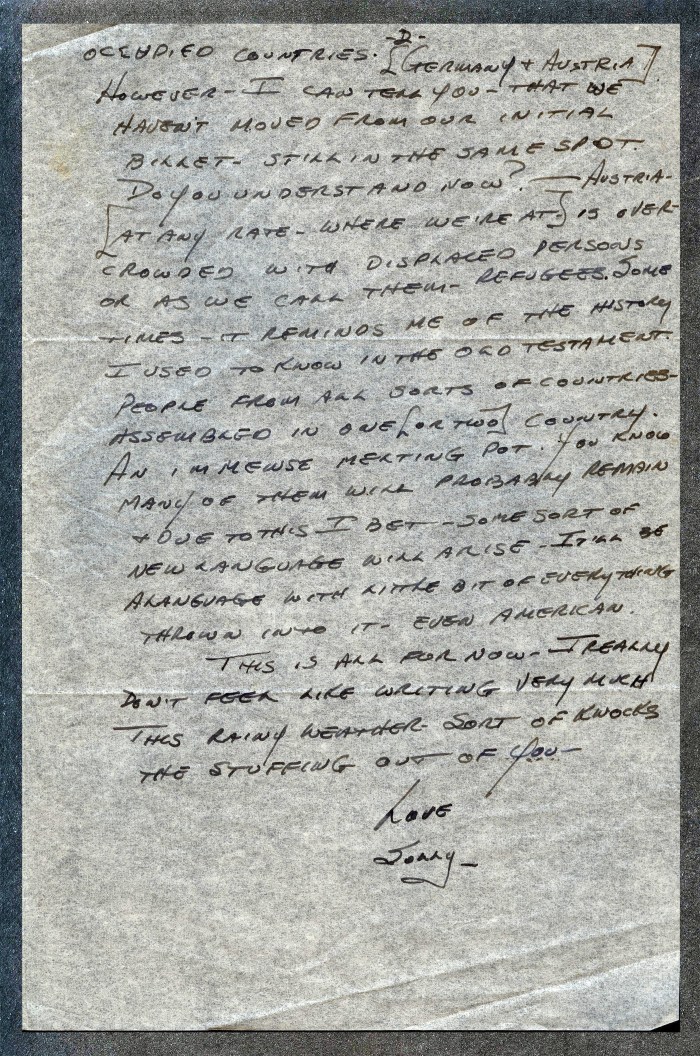 -D-
OCCUPIED COUNTRIES. [GERMANY & AUSTRIA].
HOWEVER - I CAN TELL YOU - THAT WE
HAVEN'T MOVED FROM OUR INITIAL
BILLET - STILL IN THE SAME SPOT.
DO YOU UNDERSTAND NOW? - AUSTRIA -
[AT ANY RATE - WHERE WE'RE AT -] IS OVER-
CROWDED WITH DISPLACED PERSONS
OR AS WE CALL THEM - REFUGEES. SOME
TIMES - IT REMINDS ME OF THE HISTORY
I USED TO KNOW IN THE OLD TESTAMENT.
PEOPLE FROM ALL SORTS OF COUNTRIES -
ASSEMBLED IN ONE [OR TWO] COUNTRY.
AN IMMEWSE MELTING POT. YOU KNOW
MANY OF THEM WILL PROBABLY REMAIN
& DUE TO THIS I BET - SOME SORT OF
NEW LANGUAGE WILL ARISE - IT'LL BE
A LANGUAGE WITH LITTLE BIT OF EVERYTHING
THROWN INTO IT - EVEN AMERICAN.
THIS IS ALL FOR NOW - I REALLY
DON'T FEEL LIKE WRITING VERY MUCH
THIS RAINY WEATHER SORT OF KNOCKS
THE STUFFING OUT OF YOU -
LOVE